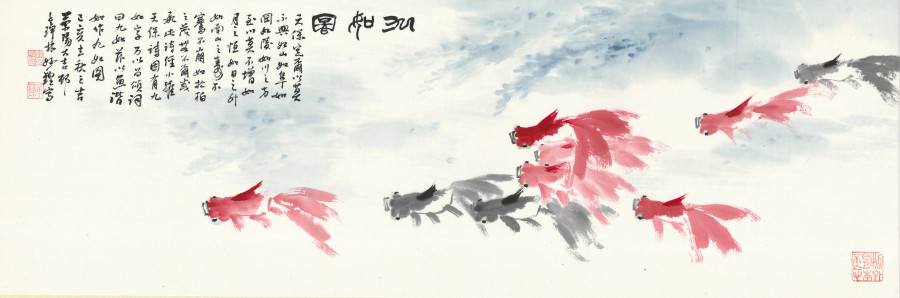 九如圖
天保定爾以莫
不興如山如阜如
岡如陵如川之方
至以莫不增如
月之恒如日之升
如南山之壽不
騫不崩如松柏
之茂無不爾或
承此詩經小雅
天保詩因有九
如字乃以為頌詞
曰九如茲以魚諧
如作九如圖
己亥立秋之吉
大吉邨
林妙
寫